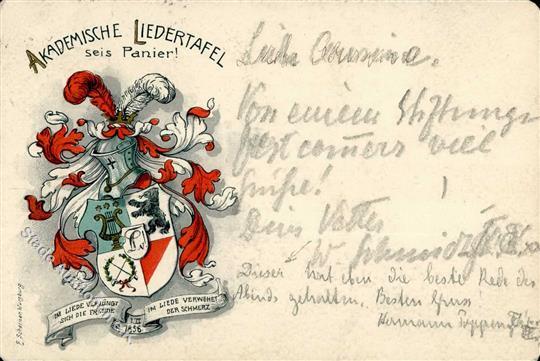 AKADEMISCHE LIEDERTAFEL
seis Panier!
Von einem Stiftungs-
fest comers viel
Grüße!
Dein Vetter
W. Schmidt
Dieser hat eben die beste Rede des
Abends gehalten. Besten Gruss
Hermann
IM LIEDE VERJÜNGT
SICH DIE FREUDE
IM LIEDE VERWEHET
DER SCHMERZ
1856